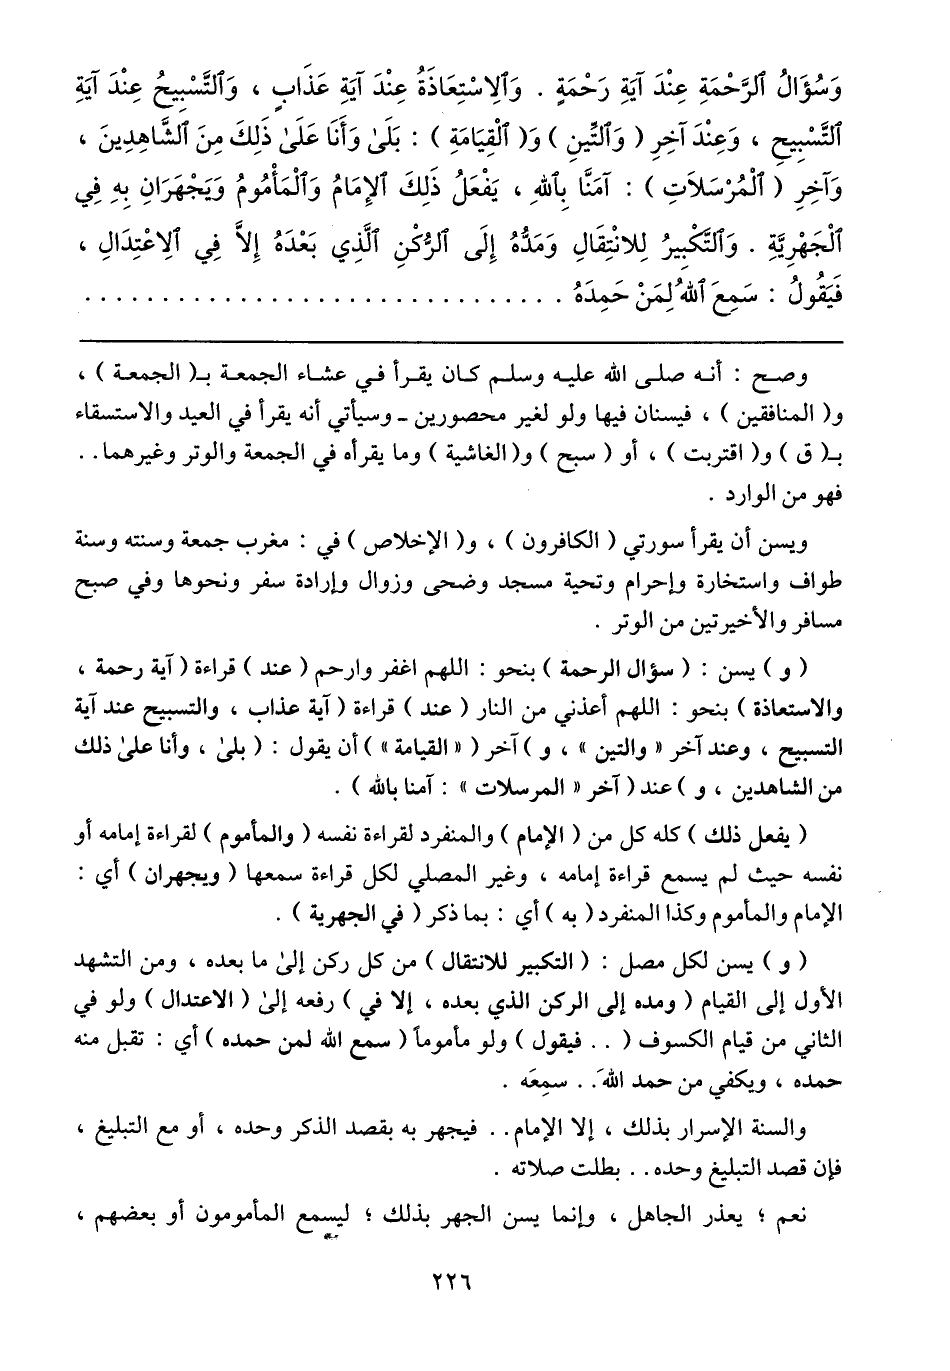 وَسُؤَالُ ٱلرَّحْمَةِ عِنْدَ آيَةِ رَحْمَةٍ . وَٱلِاسْتِعَاذَةُ عِنْدَ آيَةِ عَذَابٍ ، وَٱلتَّسْبِيحُ عِنْدَ آيَةِ
ٱلتَّسْبِيحِ ، وَعِنْدَ آخِرِ ( وَٱلتِّينِ ) وَ( ٱلْقِيَامَةِ ) : بَلَىٰ وَأَنَا عَلَىٰ ذَلِكَ مِنَ ٱلشَّاهِدِينَ ،
وَآخِرِ ( ٱلْمُرْسَلَاتِ ) : آمَنَّا بِٱللهِ ، يَفْعَلُ ذَلِكَ ٱلإِمَامُ وَٱلْمَأْمُومُ وَيَجْهَرَانِ بِهِ فِي
ٱلْجَهْرِيَّةِ . وَٱلتَّكْبِيرُ لِلانْتِقَالِ وَمَدُّهُ إِلَى ٱلرُّكْنِ ٱلَّذِي بَعْدَهُ إِلاَّ فِي ٱلِاعْتِدَالِ ،
فَيَقُولُ : سَمِعَ ٱللهُ لِمَنْ حَمِدَهُ . . . . . . . . . . . . . . . . . . . . . . . . . . . . . . . .
وصح : أنه صلى الله عليه وسلم كان يقرأ في عشاء الجمعة بـ( الجمعة ) ،
و( المنافقين ) ، فيسنان فيها ولو لغير محصورين ـ وسيأتي أنه يقرأ في العيد والاستسقاء
بـ( ق ) و( اقتربت ) ، أو ( سبح ) و( الغاشية ) وما يقرأه في الجمعة والوتر وغيرهما . .
فهو من الوارد .
ويسن أن يقرأ سورتي ( الكافرون ) ، و( الإخلاص ) في : مغرب جمعة وسنته وسنة
طواف واستخارة وإحرام وتحية مسجد وضحى وزوال وإرادة سفر ونحوها وفي صبح
مسافر والأخيرتين من الوتر .
( و ) يسن : ( سؤال الرحمة ) بنحو : اللهم اغفر وارحم ( عند ) قراءة ( آية رحمة ،
والاستعاذة ) بنحو : اللهم أعذني من النار ( عند ) قراءة ( آية عذاب ، والتسبيح عند آية
التسبيح ، وعند آخر « والتين » ، و ) آخر ( « القيامة » ) أن يقول : ( بلىٰ ، وأنا علىٰ ذلك
من الشاهدين ، و ) عند ( آخر « المرسلات » : آمنا بالله ) .
( يفعل ذلك ) كله كل من ( الإمام ) والمنفرد لقراءة نفسه ( والمأموم ) لقراءة إمامه أو
نفسه حيث لم يسمع قراءة إمامه ، وغير المصلي لكل قراءة سمعها ( ويجهران ) أي :
الإمام والمأموم وكذا المنفرد ( به ) أي : بما ذكر ( في الجهرية ) .
( و ) يسن لكل مصل : ( التكبير للانتقال ) من كل ركن إلىٰ ما بعده ، ومن التشهد
الأول إلى القيام ( ومده إلى الركن الذي بعده ، إلا في ) رفعه إلىٰ ( الاعتدال ) ولو في
الثاني من قيام الكسوف ( . . فيقول ) ولو مأموماً ( سمع الله لمن حمده ) أي : تقبل منه
حمده ، ويكفي من حمد اللهَ . . سمِعَه .
والسنة الإسرار بذلك ، إلا الإمام . . فيجهر به بقصد الذكر وحده ، أو مع التبليغ ،
فإن قصد التبليغ وحده . . بطلت صلاته .
نعم ؛ يعذر الجاهل ، وإنما يسن الجهر بذلك ؛ ليسمع المأمومون أو بعضهم ،
٢٢٦